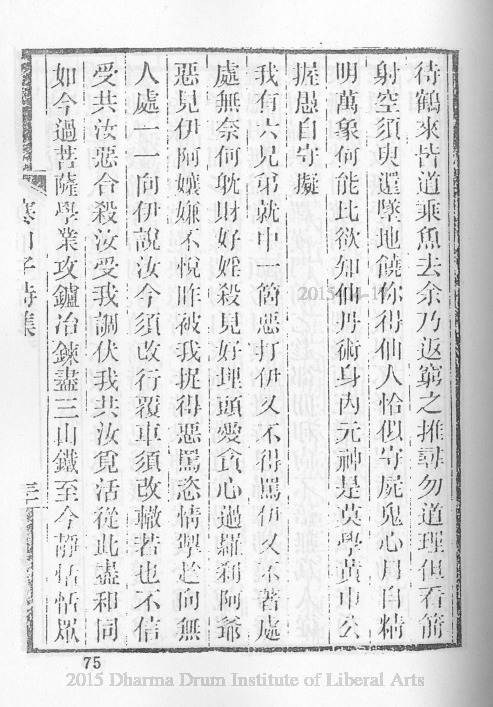 待鶴來皆道乘魚去余乃返窮之推尋勿道理但看箭
射空須臾還墜地饒你得仙人恰似守屍鬼心月自精
明萬象何能比欲知仙丹術身內元神是莫學黃巾公
握愚自守擬
我有六兄弟就中一箇惡打伊又不得罵伊又不著處
處無奈何耽財好婬殺見好埋頭愛貪心過羅剎阿爺
惡見伊阿孃嫌不悅昨被我捉得惡罵恣情掣趁向無
人處一一向伊說汝今須改行覆車須改轍若也不信
受共汝惡合殺汝受我調伏我共汝覓活從此盡和同
如今過菩薩學業攻鑪冶鍊盡三山鐵至今靜恬恬眾
寒山子詩集
三
75
2015 Dharma Drum Institute of Liberal Arts